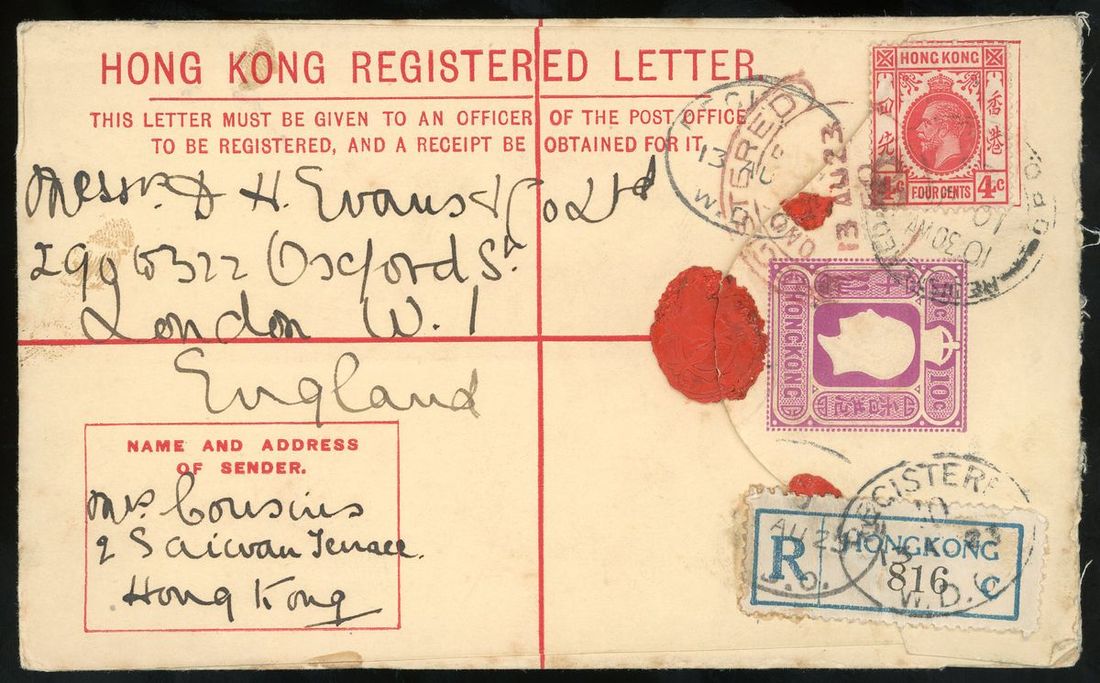 HONG KONG REGISTERED LETTER
THIS LETTER MUST BE GIVEN TO AN OFFICER OF THE POST OFFICE
TO BE REGISTERED, AND A RECEIPT BE OBTAINED FOR IT.
Messrs. D H. Evans & Co Ltd
290 to 322 Oxford St
London W. 1
England
NAME AND ADDRESS
OF SENDER.
Mrs Cousins
2 Saiwan Terrace.
Hong Kong
HONG KONG
香港
四先
4c
FOUR CENTS
4c
REGISTERED
13 AU 23
13
W.D.O
10 30 AM
G.P.O.
HONG KONG
10c
10c
R
HONGKONG
816
C
AU 23
REGISTERE
23
W.D.